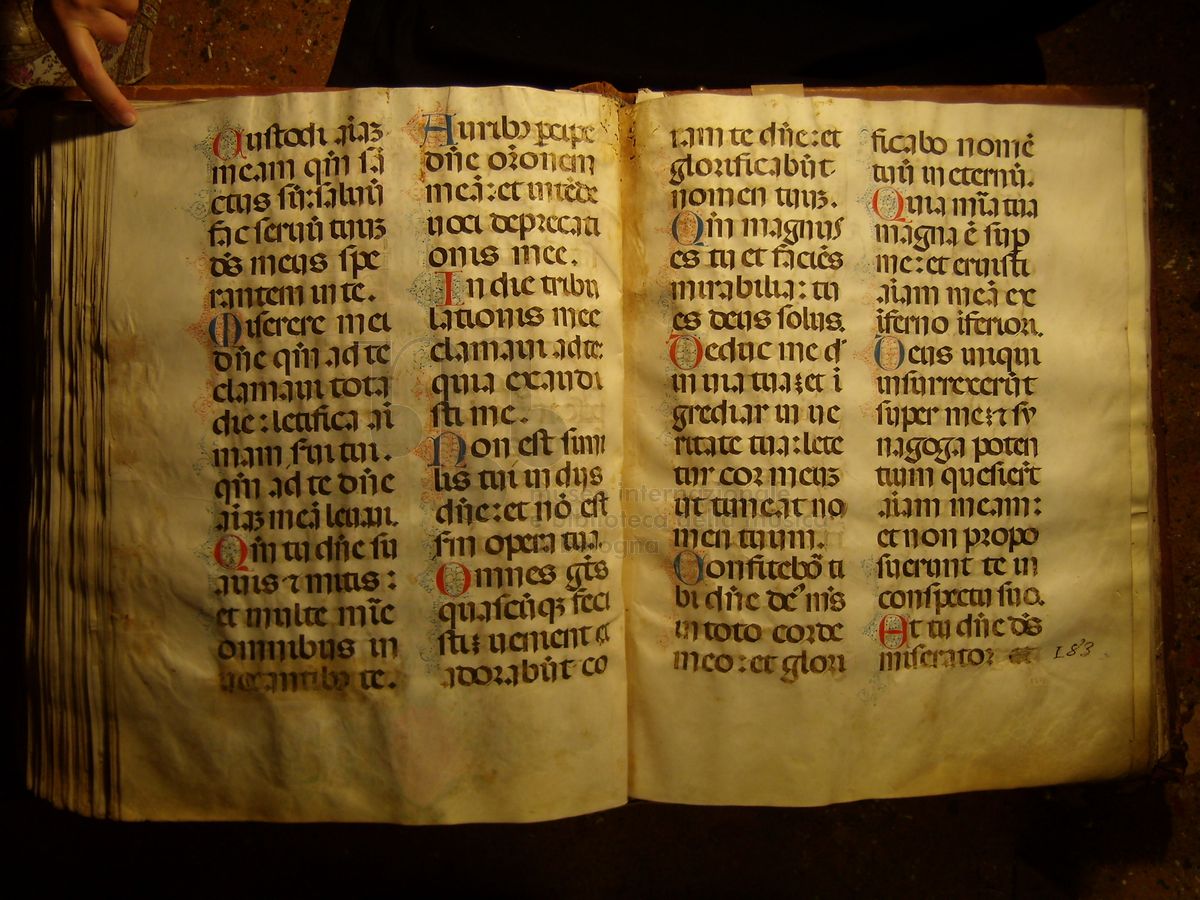 Custodi aĩaʒ
meam qm̃ sã
ctus sũ: saluũ
fac seruũ tuuʒ
ds̃ meus spe
rantem in te.
Miserere mei
dñe qm̃ ad te
clamaui tota
die: letifica ai
mam fui tui.
qm̃ ad te dñe
aĩaʒ meã leuaui.
Qm̃ tu dñe su
auis ⁊ mitis:
et multe mĩe
omnibus in
uocantibʒ te.
Auribʒ pcipe
dñe oronem
meã: et intẽde
uoci deprecati
onis mee.
In die tribu
lationis mee
clamaui ad te:
quia exaudi
sti me.
Non est simi
lis tui in dijs
dñe: et nõ est
sm̃ opera tua.
Omnes gẽs
quascũqʒ feci
sti: uenient et
adorabũt co
ram te dñe: et
glorificabũt
nomen tuuʒ.
Qm̃ magnus
es tu et faciẽs
mirabilia: tu
es deus solus.
Deduc me dñe
in uia tua: et i
grediar in ue
ritate tua: lete
tur cor meuʒ
ut timeat no
men tuum.
Confitebor̃ ti
bi dñe de9 m̃s
in toto corde
meo: et glori
ficabo nomẽ
tuũ in eternũ.
Quia mĩa tua
magna ẽ sup
me: et eruisti
aĩam meã ex
ĩferno ĩferiori.
Deus iniqui
insurrexerũt
super me: ⁊ sy
nagoga poten
tium quesiert̃
aĩam meam:
et non propo
suerunt te in
conspectu suo.
Et tu dñe ds̃
miserator et
183
museo internazionale
e biblioteca della musica
bologna